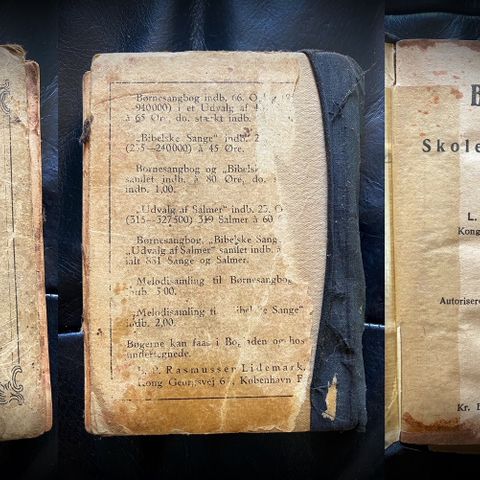 Børnesangbog indb. 66.
940000) i et Udvalg af
à 65 Øre, do. stærkt indb.
„Bibelske Sange" indb. 2
(235—240000) à 45 Øre.
Børnesangbog og
samlet indb. à 80 Øre, do.
indb. 1,00.
„Udvalg af Salmer" indb.
(315—327500) 319 Salmer à 60
Børnesangbog, „Bibelske Sang
„Udvalg af Salmer" samlet indb. à
ialt 881 Sange og Salmer.
Melodisamling til Børnesangbog
5.00.
Melodisamling Sange"
indb. 2,00.
Bøgerne kan faas i og hos
undertegnede.
Rasmussen Lidemark,
Kong Georgsvej København F
B
Skole
L.
Kong
Autorisere
Kr. B